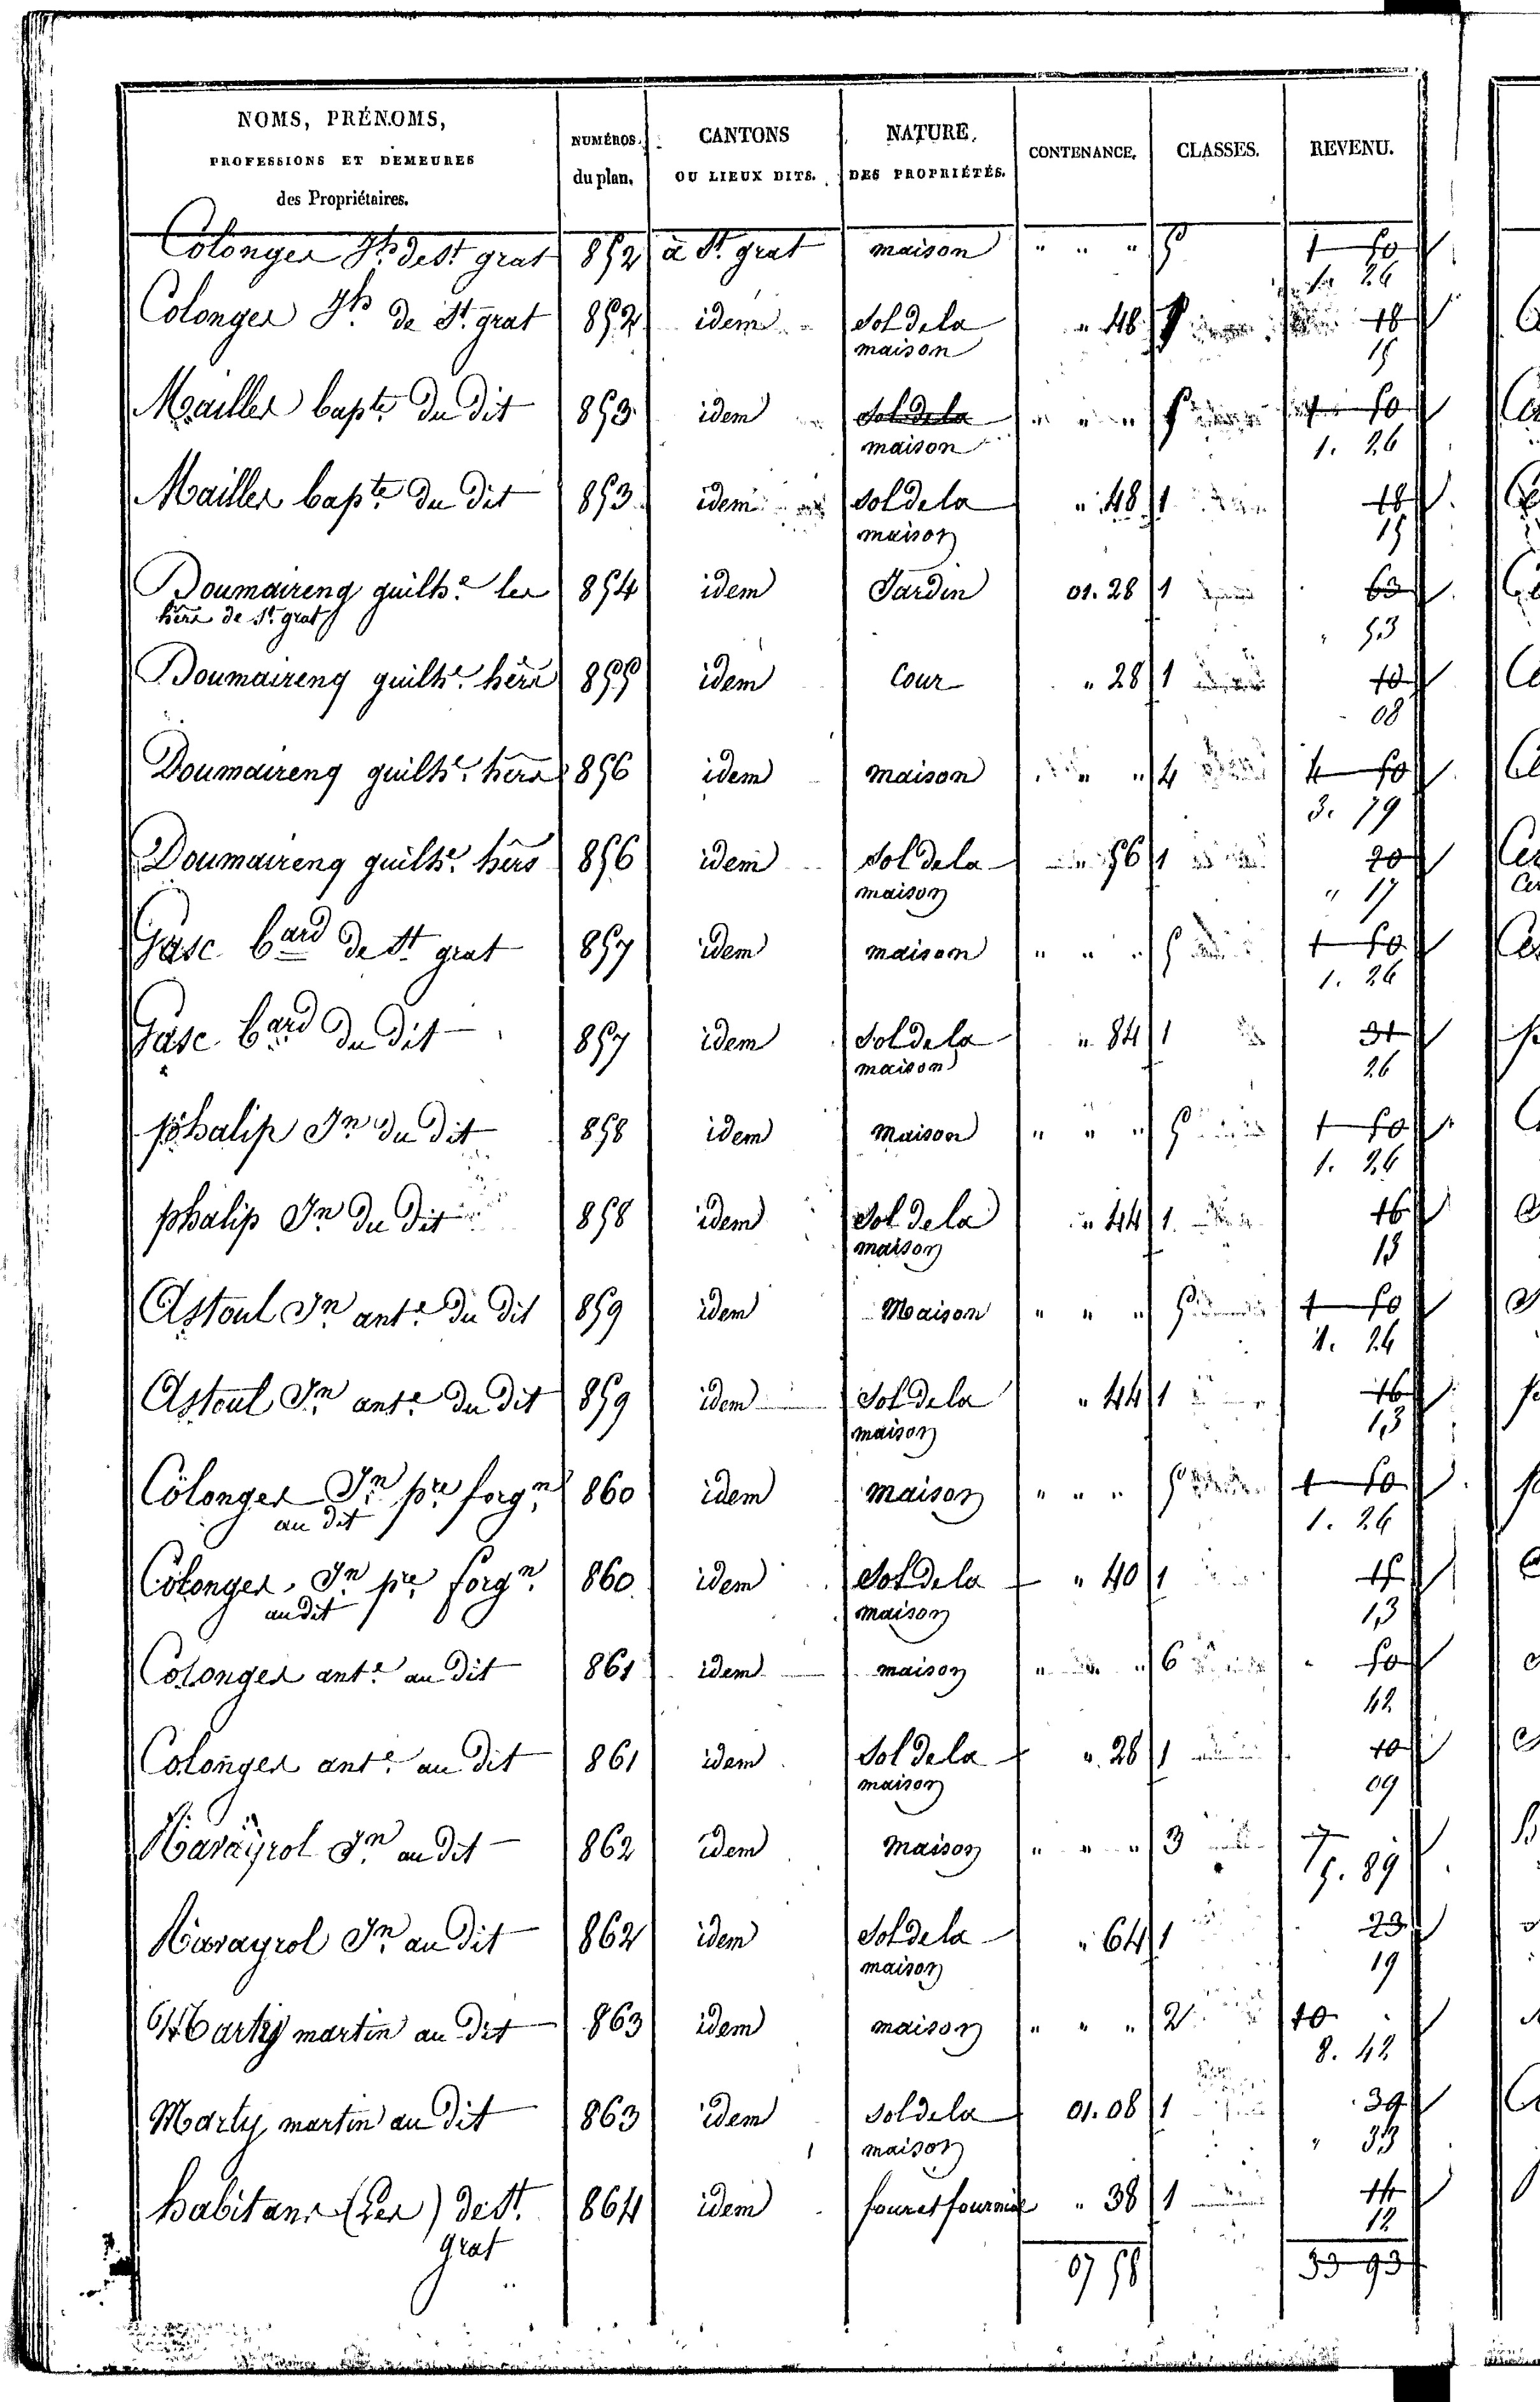 NOMS, PRÉNOMS, PROFESSIONS ET DEMEURES des Propriétaires. NUMÉROS du plan. CANTONS OU LIEUX DITS. NATURE DES PROPRIÉTÉS. CONTENANCE. CLASSES. REVENU.
Colonges Jh de St grat 852 à St grat maison " " " 5 1 50
1. 26
Colonges Jh de St grat 852 idem Sol de la " 48 1 18
maison 15
Mailles bapte du dit 853 idem Sol de la " " " 5 1 50
maison 1. 26
Mailles bapte du dit 853 idem sol de la " 48 1 18
maison 15
Doumaireng guilhe les 854 idem Jardin 01. 28 1 63
hérs de St grat " 53
Doumaireng guilhe hérs 855 idem Cour " 28 1 10
08
Doumaireng guilhe hérs 856 idem maison " " 4 4 50
3. 79
Doumaireng guilhe hérs 856 idem Sol de la " 56 1 20
maison " 17
Gasc bard de St grat 857 idem maison " " " 5 1 50
1. 26
Gasc bard du dit 857 idem Sol de la " 84 1 31
maison 26
phalip Jn du dit 858 idem maison " " " 5 1 50
1. 26
phalip Jn du dit 858 idem Sol de la " 44 1 16
maison 13
Astoul Jn ante du dit 859 idem Maison " " " 5 1 50
1. 26
Astoul Jn ante du dit 859 idem Sol de la " 44 1 16
maison 13
Colonges Jn pre forgn 860 idem maison " " " 5 1 50
au dit 1. 26
Colonges Jn pre forgn 860 idem Sol de la " 40 1 15
au dit maison 13
Colonges ante au dit 861 idem maison " " " 6 " 50
42
Colonges ante au dit 861 idem Sol de la " 28 1 10
maison 09
Navayrol Jn au dit 862 idem Maison " " " 3 7
5. 89
Navayrol Jn au dit 862 idem Sol de la " 64 1 23
maison 19
Marty martin au dit 863 idem maison " " " 2 10
8. 42
Marty martin au dit 863 idem sol de la 01. 08 1 39
maison " 33
habitans (Les) de St 864 idem four et fournial " 38 1 14
grat 12
07 58 33 93